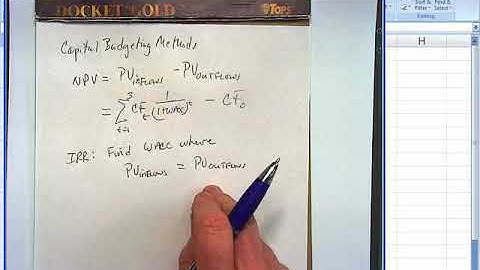 DOCKET GOLD TOPS
Capital Budgeting Methods
NPV = PV INFLOWS - PV OUTFLOWS
= 3 ∑ t=1 CF t 1/(1+WACC)^t - CF 0
IRR: Find WACC where
PV INFLOWS = PV OUTFLOWS
Sort & Find &
Filter Select
Editing
H